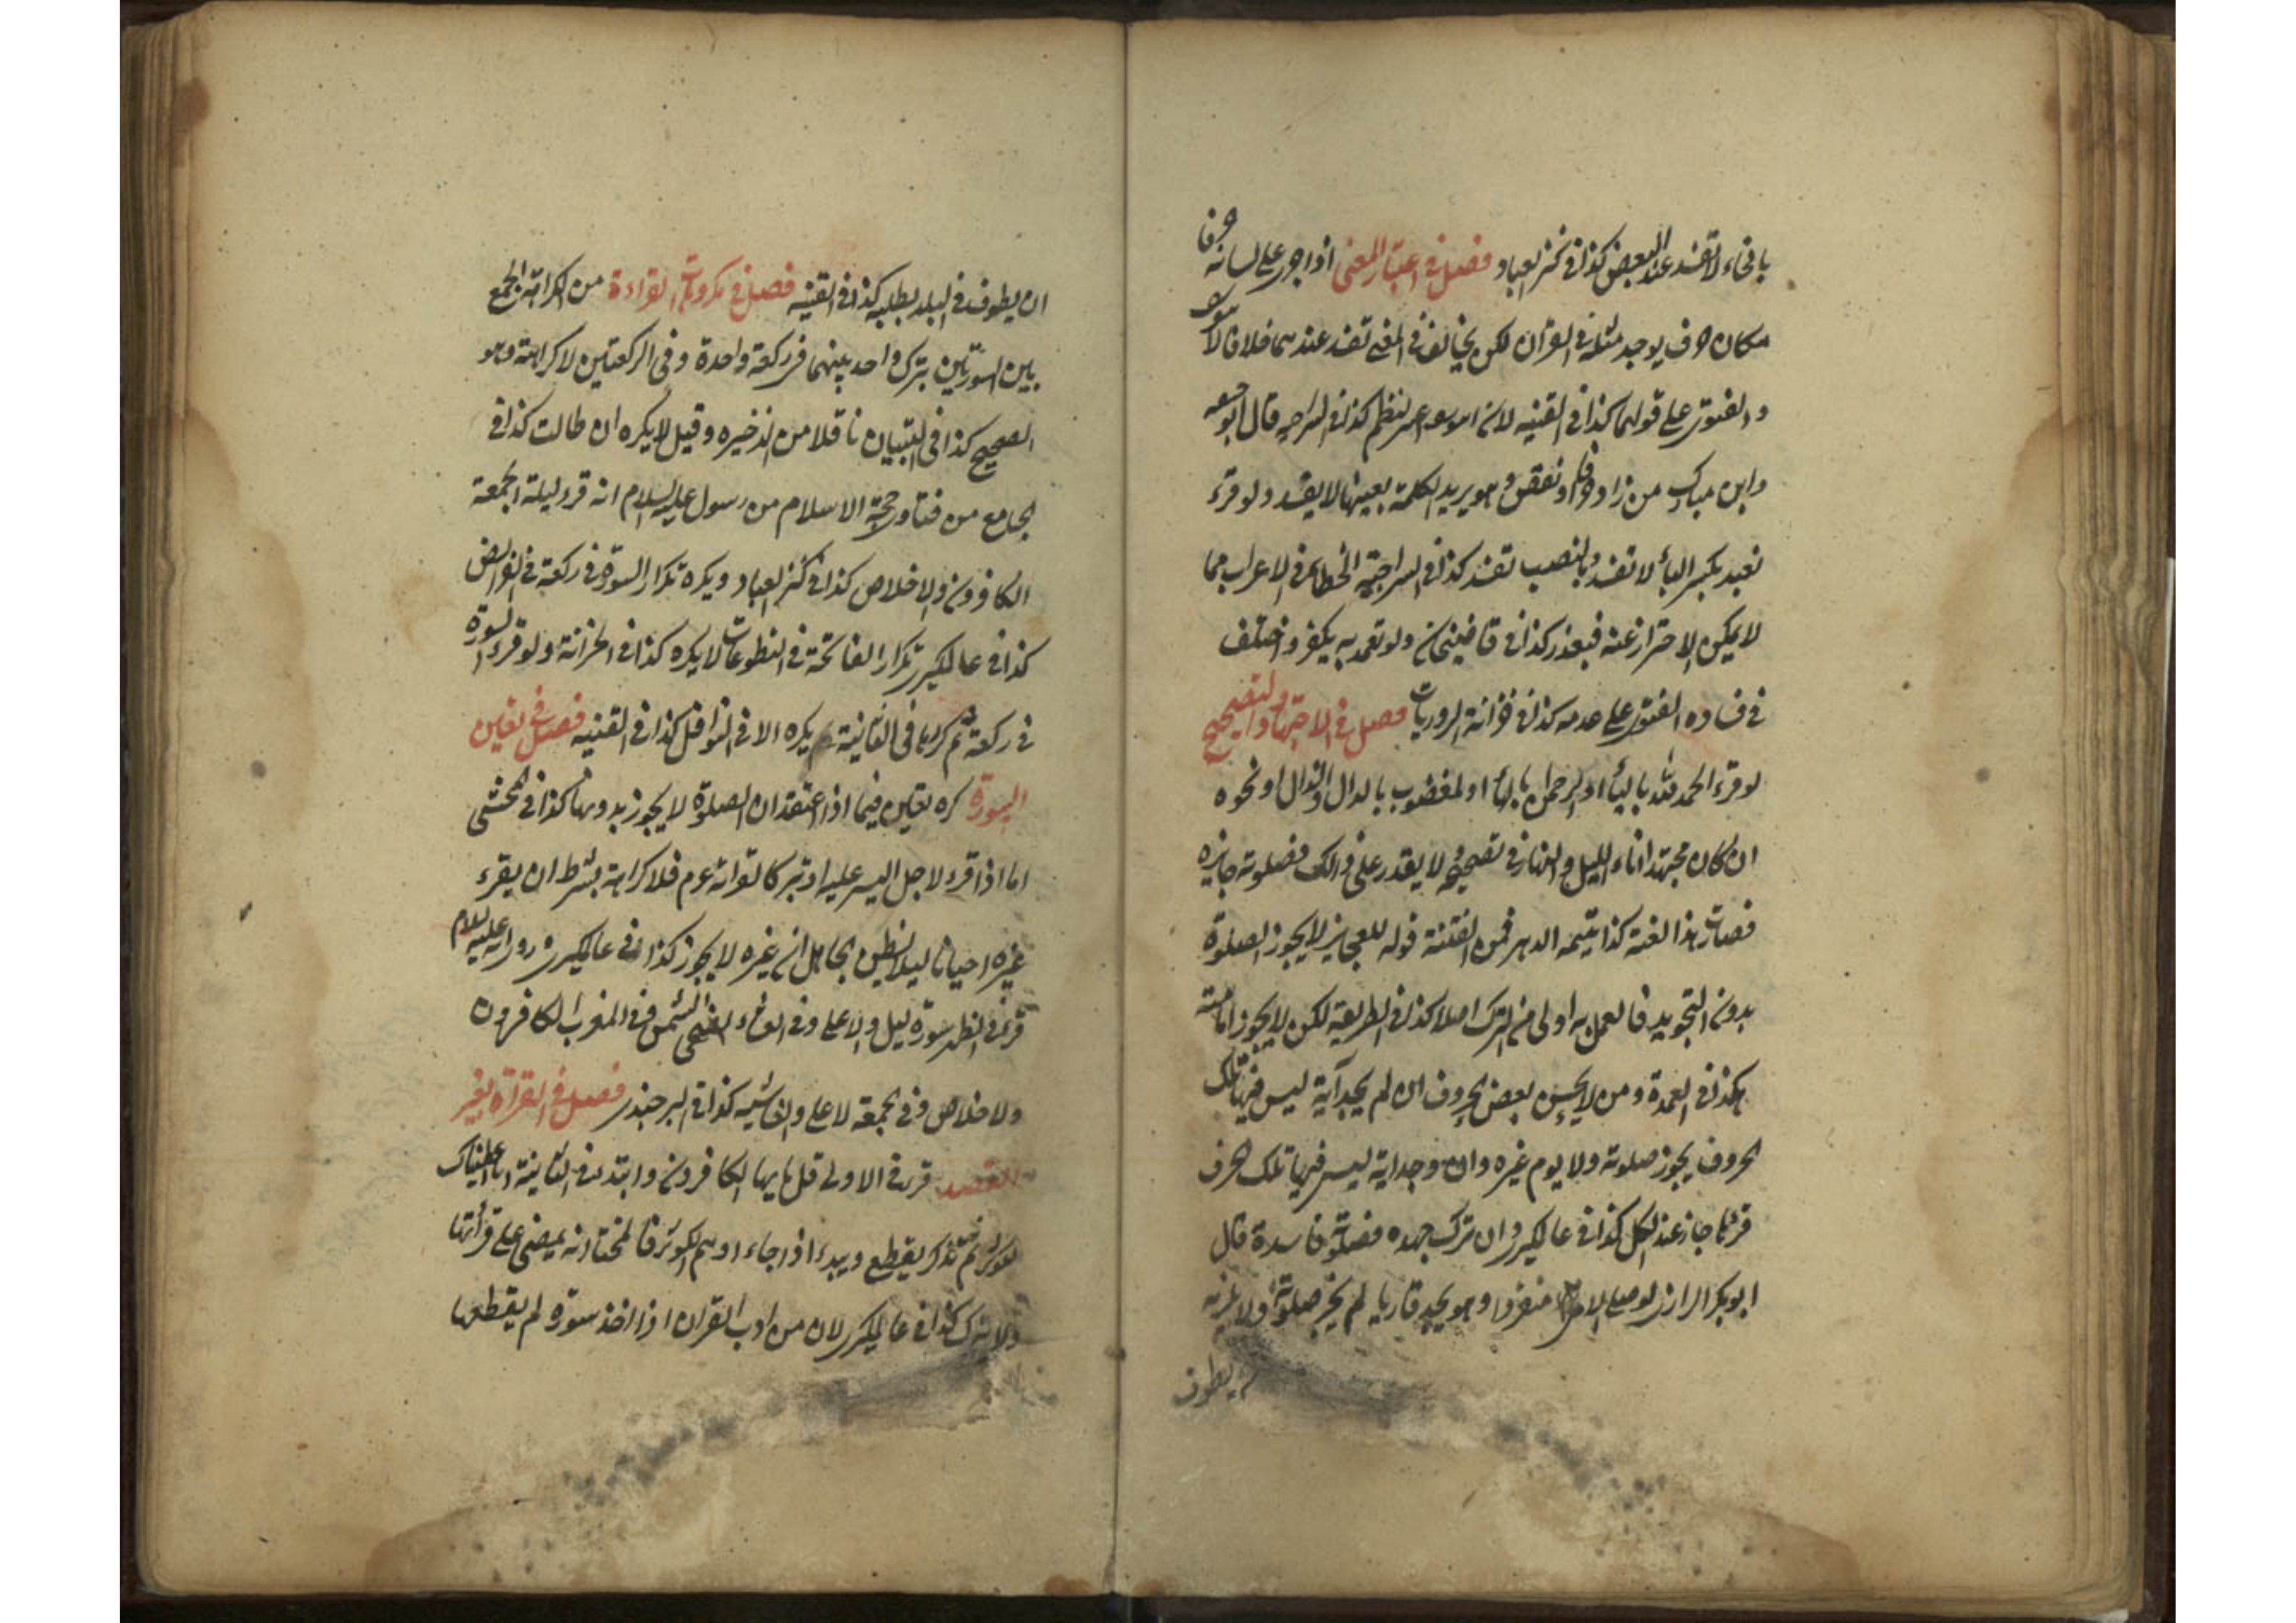 باقناء لا تفسد عند البعض كذا فى كنز العباد فصل فى اعتبار المعنى اذا جرى على لسانه حرفا
مكان حرف يوجد مثله فى القران لكن يخالف فى المعنى تفسد عندهما خلافا لابى يوسف
والفتوى على قولهما كذا فى القنيه لان ابو يوسف اعتبر النظم كذا فى السراجيه قال ابو حفص
وابن مبارك من زاد حرفا او نقص وهو يريد الكلمة بعينها لا يفسد ولو قرء
نعبد بكسر الباء لا تفسد وبالنصب تفسد كذا فى السراجيه الخطاء فى الاعراب مما
لا يمكن الاحتراز عنه فيعذر كذا فى قاضيخان ولو تعمد به يكفر واختلف
فى فساده الفتوى على عدمه كذا فى خزانة الروايات فصل فى الاجتهاد والتصحيح
لو قرء الحمد لله بالهاء او الرحمن بالهاء او المغضوب بالدال والذال او نحوه
ان كان مجتهدا اناء الليل والنهار فى تصحيحه ولا يقدر على ذالك فصلوته جايزه
فصارت هذا لغته كذا يتيمة الدهر فمن الفتنة قوله للعجايز لا يجوز الصلوة
بدون التجويد فالعمل به اولى من الترك اصلا كذا فى الطريقة لكن لا يجوز امامته
هكذا فى العمدة ومن لا يحسن بعض الحروف ان لم يجد آية ليس فيها تلك
الحروف يجوز صلوته ولا يوم غيره وان وجد اية ليس فيها تلك حرف
قرئها جاز عند الكل كذا فى عالمكيرى وان ترك جهده فصلوته فاسدة قال
ابوبكر الرازى لو صلى الامى منفردا وهو يجد قاريا لم يجز صلوته ولا يلزمه
ان يطوف
ان يطوف فى البلد بطلبه كذا فى القنيه فصل فى مكروهات القراءة من الكراهة الجمع
بين السورتين بترك واحد بينهما فى ركعة واحدة وفى الركعتين لا كراهته وهو
الصحيح كذا فى التبيان ناقلا من الذخيره وقيل لا يكره ان طالت كذا فى
الجامع من فتاوى حجة الاسلام من رسول عليه السلام انه قرء ليلة الجمعة
الكافرون والاخلاص كذا فى كنز العباد ويكره تكرار السورة فى ركعة فى الفرائض
كذا فى عالمكيرى تكرار الفاتحة فى التطوعات لا يكره كذا فى الخزانة ولو قرء السورة
فى ركعة ثم كررها فى الثانية يكره الا فى النوافل كذا فى القنيه فصل فى تعين
السورة كره تعين فيما اذا اعتقد ان الصلوة لا يجوز بدونها كذا فى المحشى
اما اذا قرء لاجل اليسر عليه او تبركا لقراته عم فلا كراهة بشرط ان يقرء
غيره احيانا ليلا يظن الجاهل ان غيره لا يجوز كذا فى عالمكيرى روى انه عليه السلام
قرء فى الظهر سورة ليل والاعلى وفى العشاء الضحى والشمس وفى المغرب الكافرون
والاخلاص وفى الجمعة لاعلى والغاشيه كذا فى البرجندى فصل فى القراة بغير
القصد قرء فى الاولى قل يا يها الكافرون وابتدء فى الثانية انا اعطيناك
الكوثر ثم تذكر يقطع ويبدء اذا جاء او يتم الكوثر فالمختار انه يمضى على قرأتها
ولا يترك كذا فى عالمكيرى لان من ادب القران اذا اخذ سورة لم يقطعها